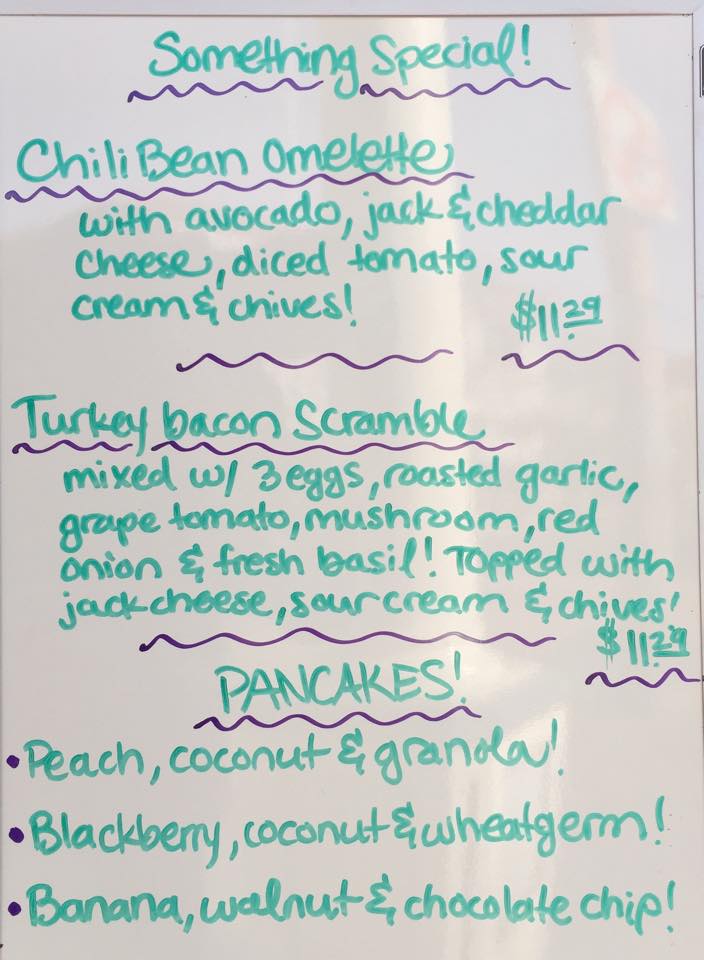 Something Special!
Chili Bean Omelette
with avocado, jack & cheddar
cheese, diced tomato, sour
cream & chives!
$11.29
Turkey bacon Scramble
mixed w/ 3 eggs, roasted garlic,
grape tomato, mushroom, red
onion & fresh basil! Topped with
jack cheese, sour cream & chives!
$11.29
PANCAKES!
• Peach, coconut & granola!
• Blackberry, coconut & wheatgerm!
• Banana, walnut & chocolate chip!